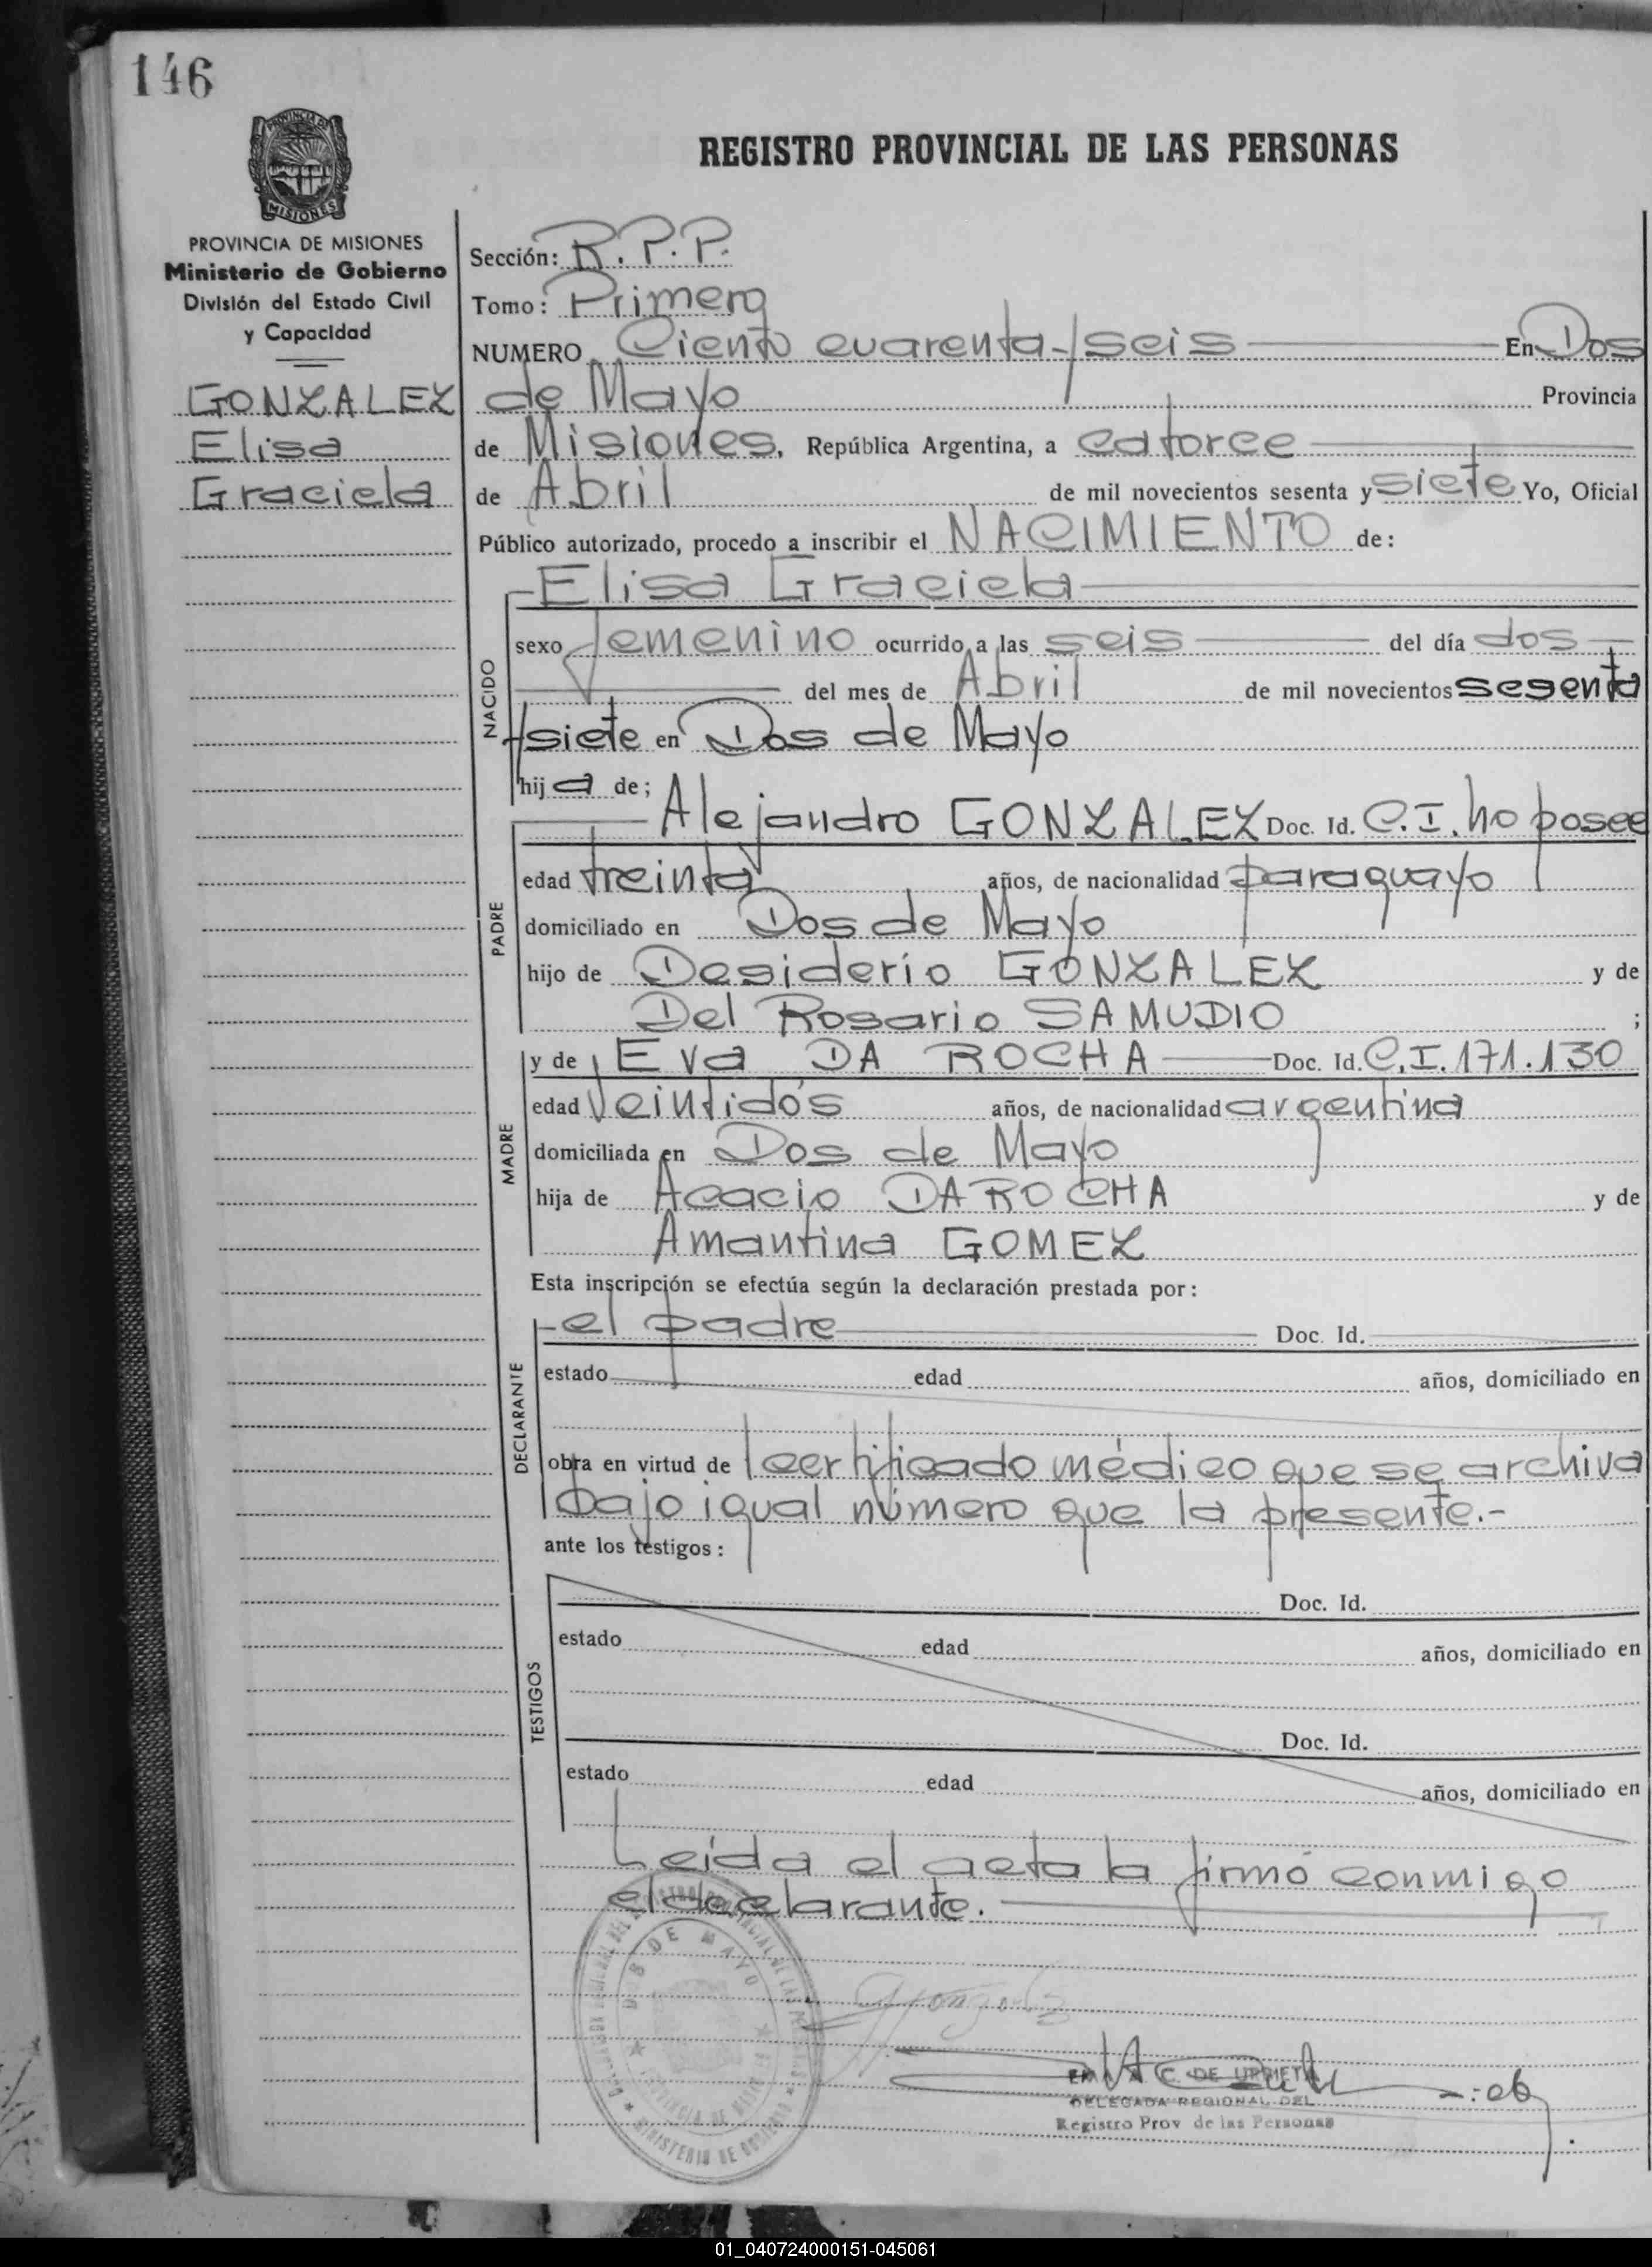 146
PROVINCIA DE
MISIONES
REGISTRO PROVINCIAL DE LAS PERSONAS
PROVINCIA DE MISIONES
Ministerio de Gobierno
División del Estado Civil
y Capacidad
GONZALEZ
Elisa
Graciela
Sección: R.P.P.
Tomo: Primero
NUMERO Ciento cuarenta y seis En Dos
de Mayo Provincia
de Misiones, República Argentina, a catorce
de Abril de mil novecientos sesenta y siete Yo, Oficial
Público autorizado, procedo a inscribir el NACIMIENTO de:
Elisa Graciela
NACIDO
sexo femenino ocurrido a las seis del día dos
del mes de Abril de mil novecientos sesenta
y siete en Dos de Mayo
hija de;
PADRE
Alejandro GONZALEZ Doc. Id. C.I. no posee
edad treinta años, de nacionalidad paraguayo
domiciliado en Dos de Mayo
hijo de Desiderio GONZALEZ y de
Del Rosario SAMUDIO ;
MADRE
y de Eva DA ROCHA Doc. Id. C.I. 171.130
edad Veintidós años, de nacionalidad argentina
domiciliada en Dos de Mayo
hija de Acacio DA ROCHA y de
Amantina GOMEZ
Esta inscripción se efectúa según la declaración prestada por:
DECLARANTE
el padre Doc. Id.
estado edad años, domiciliado en
obra en virtud de certificado médico que se archiva
bajo igual número que la presente.-
ante los testigos:
TESTIGOS
Doc. Id.
estado edad años, domiciliado en
Doc. Id.
estado edad años, domiciliado en
Leída el acta la firmó conmigo
el declarante.
DOS DE MAYO
PROVINCIA DE MISIONES
MINISTERIO DE GOBIERNO
C. DE URRIETA
DELEGADA REGIONAL DEL
Registro Prov de las Personas
01_040724000151-045061